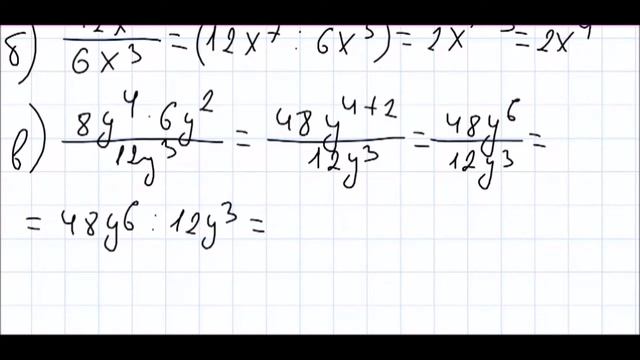 б) 12x⁷/6x³ = (12x⁷ : 6x³) = 2x⁷⁻³ = 2x⁴
в) 8y⁴ · 6y²/12y³ = 48y⁴⁺²/12y³ = 48y⁶/12y³ =
= 48y⁶ : 12y³ =